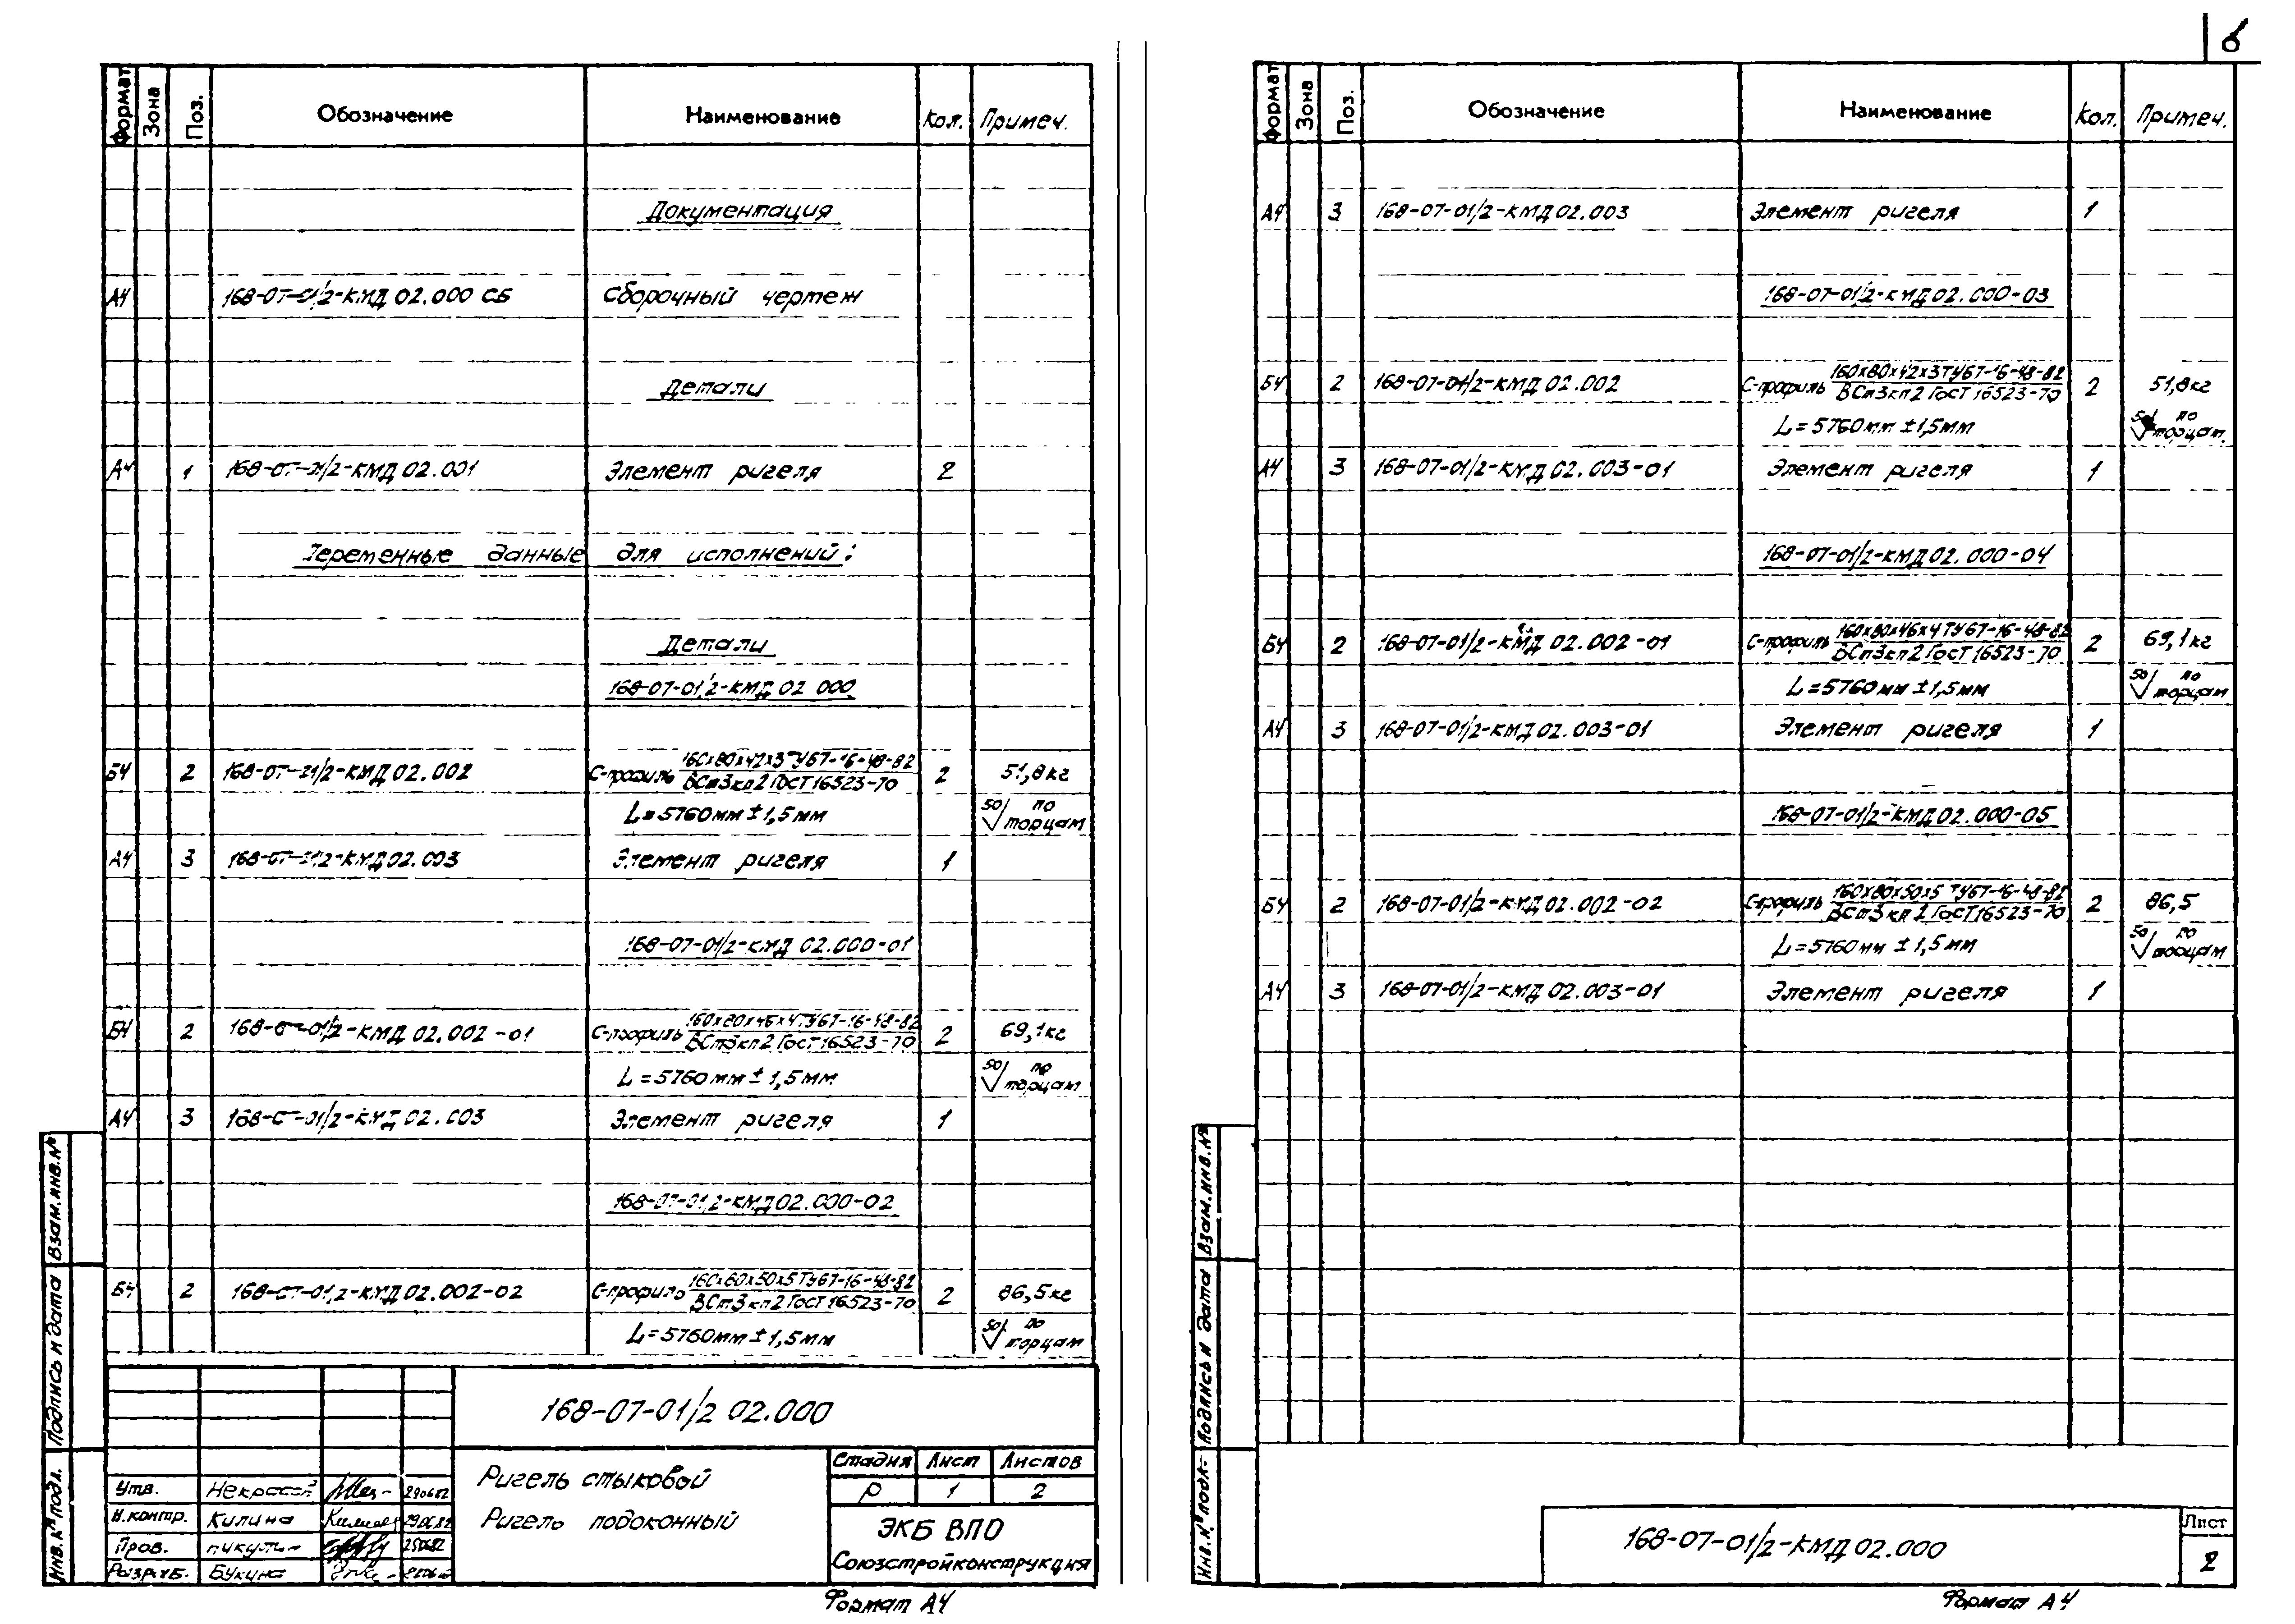 6
Формат Зона Поз. Обозначение Наименование Кол. Примеч.
Документация
А4 168-07-01/2-КМД 02.000 СБ Сборочный чертеж
Детали
А4 1 168-07-01/2-КМД 02.001 Элемент ригеля 2
Переменные данные для исполнений:
Детали
168-07-01/2-КМД 02.000
БЧ 2 168-07-01/2-КМД 02.002 С-профиль 160х80х42х3 ТУ67-16-48-82 2 51,8кг
ВСт3кп2 ГОСТ 16523-70
L=5760мм ±1,5мм 50 по торцам
А4 3 168-07-01/2-КМД 02.003 Элемент ригеля 1
168-07-01/2-КМД 02.000-01
БЧ 2 168-07-01/2-КМД 02.002-01 С-профиль 160х80х46х4 ТУ67-16-48-82 2 69,1кг
ВСт3кп2 ГОСТ 16523-70
L=5760мм ±1,5мм 50 по торцам
А4 3 168-07-01/2-КМД 02.003 Элемент ригеля 1
168-07-01/2-КМД 02.000-02
БЧ 2 168-07-01/2-КМД 02.002-02 С-профиль 160х80х50х5 ТУ67-16-48-82 2 86,5кг
ВСт3кп2 ГОСТ 16523-70
L=5760мм ±1,5мм 50 по торцам
168-07-01/2 02.000
Ригель стыковой
Ригель подоконный
Стадия Лист Листов
Р 1 2
ЭКБ ВПО
Союзстройконструкция
Утв. 290682
Н.контр. Килина 290682
Пров. 250682
Разраб. Букина
Инв.№ подл. Подпись и дата Взам.инв.№
Формат А4
Формат Зона Поз. Обозначение Наименование Кол. Примеч.
А4 3 168-07-01/2-КМД 02.003 Элемент ригеля 1
168-07-01/2-КМД 02.000-03
БЧ 2 168-07-01/2-КМД 02.002 С-профиль 160х80х42х3 ТУ67-16-48-82 2 51,8кг
ВСт3кп2 ГОСТ 16523-70
L=5760мм ±1,5мм 50 по торцам
А4 3 168-07-01/2-КМД 02.003-01 Элемент ригеля 1
168-07-01/2-КМД 02.000-04
БЧ 2 168-07-01/2-КМД 02.002-01 С-профиль 160х80х46х4 ТУ67-16-48-82 2 69,1кг
ВСт3кп2 ГОСТ 16523-70
L=5760мм ±1,5мм 50 по торцам
А4 3 168-07-01/2-КМД 02.003-01 Элемент ригеля 1
168-07-01/2-КМД 02.000-05
БЧ 2 168-07-01/2-КМД 02.002-02 С-профиль 160х80х50х5 ТУ67-16-48-82 2 86,5
ВСт3кп2 ГОСТ 16523-70
L=5760мм ±1,5мм 50 по торцам
А4 3 168-07-01/2-КМД 02.003-01 Элемент ригеля 1
Инв.№ подл. Подпись и дата Взам.инв.№
168-07-01/2-КМД 02.000
Лист
2
Формат А4